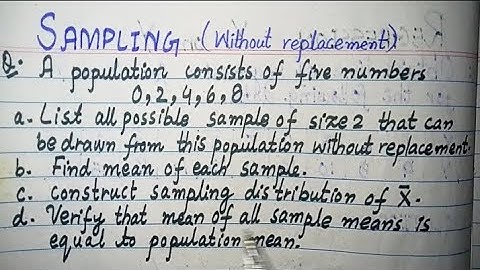 SAMPLING (Without replacement)
Q. A population consists of five numbers
0, 2, 4, 6, 8
a. List all possible sample of size 2 that can
be drawn from this population without replacement.
b. Find mean of each sample.
c. Construct sampling distribution of X̄.
d. Verify that mean of all sample means is
equal to population mean.